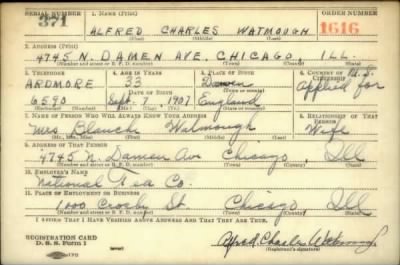 SERIAL NUMBER 371 1. NAME (Print) ORDER NUMBER 1616
ALFRED CHARLES WATMOUGH
(First) (Middle) (Last)
2. ADDRESS (Print)
4745 N. DAMEN AVE. CHICAGO, ILL.
(Number and street or R. F. D. number) (Town) (County) (State)
3. TELEPHONE 4. AGE IN YEARS 5. PLACE OF BIRTH 6. COUNTRY OF CITIZENSHIP
ARDMORE 33 U.S.
DATE OF BIRTH (Town or county) Applied for
6590 Sept. 7 1907 England
(Exchange) (Number) (Mo.) (Day) (Yr.) (State or country)
7. NAME OF PERSON WHO WILL ALWAYS KNOW YOUR ADDRESS 8. RELATIONSHIP OF THAT PERSON
Mrs Blanch Watmough Wife
(Mr., Mrs., Miss) (First) (Middle) (Last)
9. ADDRESS OF THAT PERSON
4745 N. Damen Av Chicago, Ill
(Number and street or R. F. D. number) (Town) (County) (State)
10. EMPLOYER'S NAME
National Tea Co.
11. PLACE OF EMPLOYMENT OR BUSINESS
1000 Crosby St. Chicago Ill
(Number and street or R. F. D. number) (Town) (County) (State)
I AFFIRM THAT I HAVE VERIFIED ABOVE ANSWERS AND THAT THEY ARE TRUE.
REGISTRATION CARD
D. S. S. Form 1 Alfred Charles Watmough
(Registrant's signature)